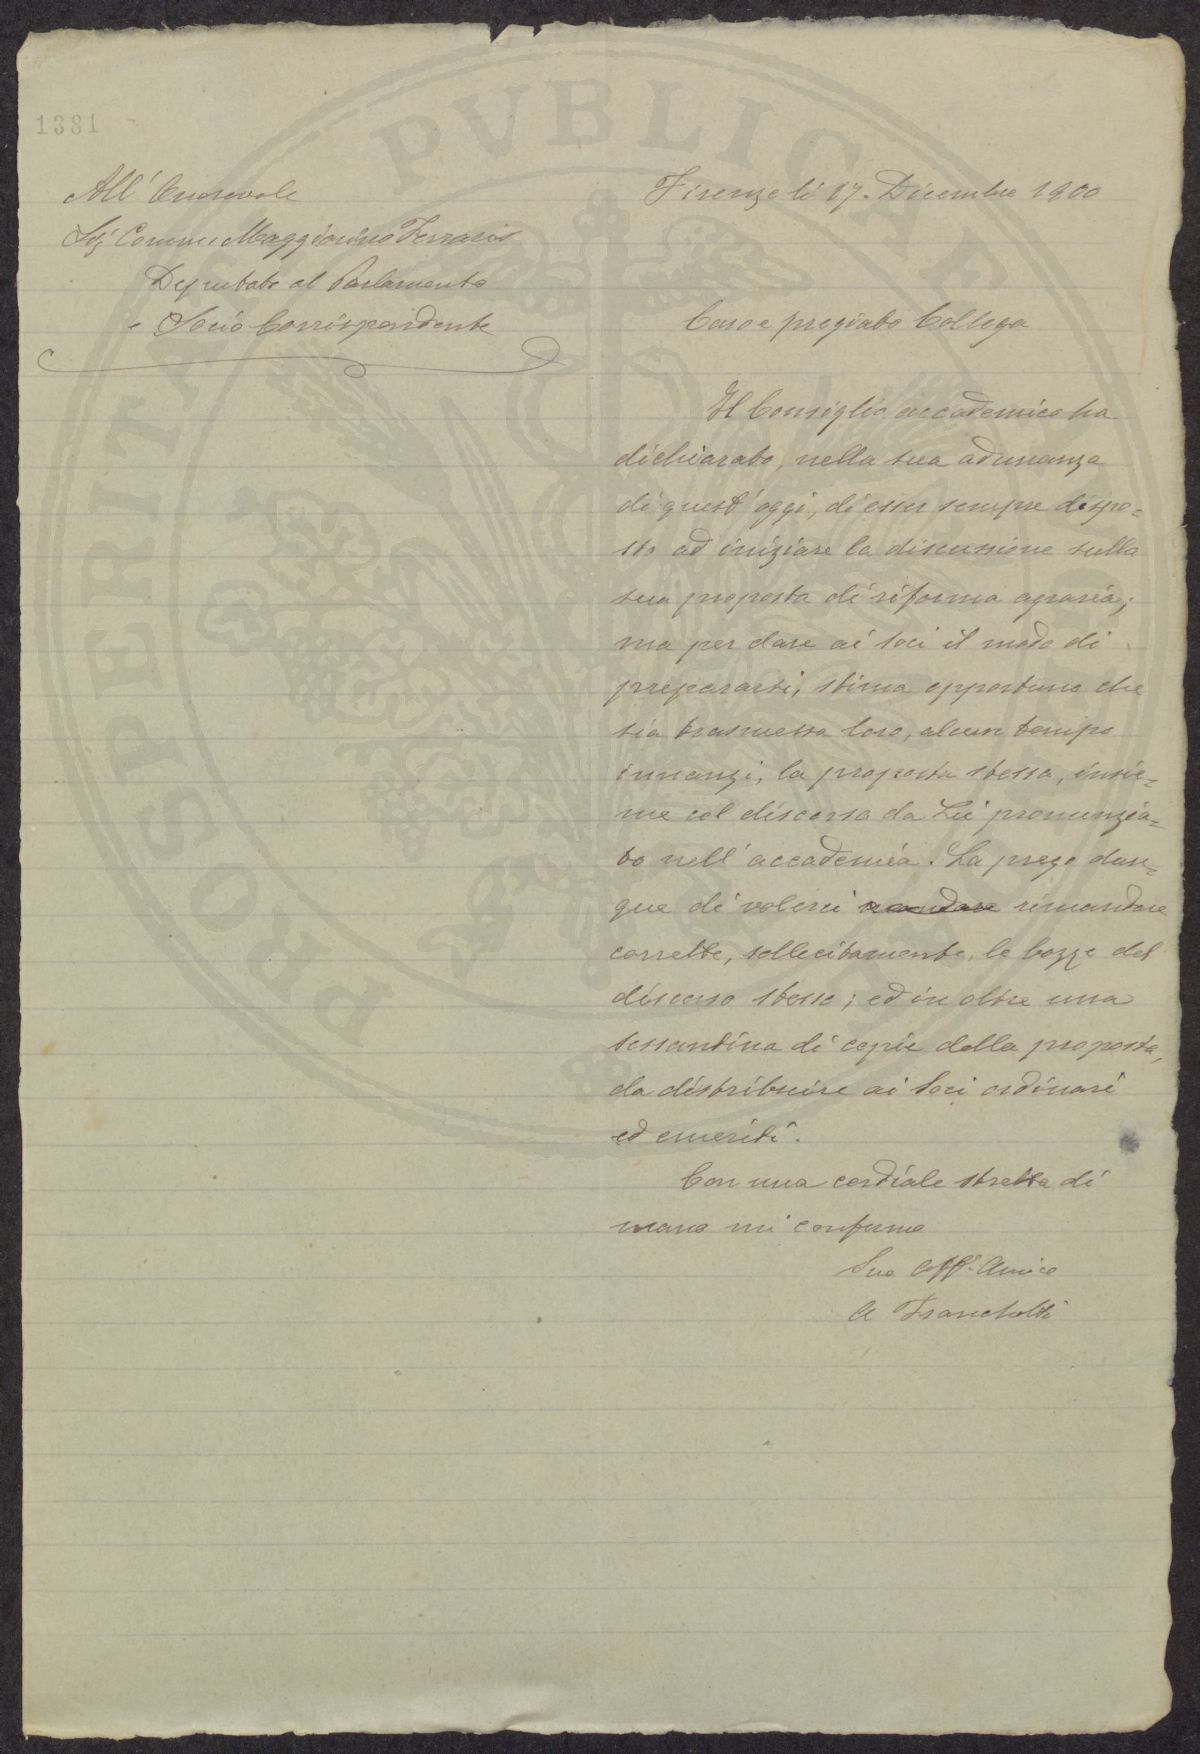 1381
All' Onorevole
Sig Comm: Maggiorino Ferraris
Deputato al Parlamento
e Socio Corrispondente
Firenze li 17. Dicembre 1900
Caro e pregiato Collega
Il Consiglio accademico ha
dichiarato, nella sua adunanza
di quest' oggi, di esser sempre dispo=
sto ad iniziare la discussione sulla
sua proposta di riforma agraria;
ma per dare ai Soci il modo di
prepararsi, stima opportuno che
sia trasmessa loro, alcun tempo
innanzi, la proposta stessa, insie=
me col discorso da Lei pronunzia=
to nell' accademia. La prego dun=
que di volerci mandare rimandare
corrette, sollecitamente, le bozze del
discorso stesso; ed in oltre una
sessantina di copie della proposta,
da distribuire ai Soci ordinari
ed emeriti.
Con una cordiale stretta di
mano mi confermo
Suo Aff: Amico
A Franchetti
PROSPERITATI PVBLICAE